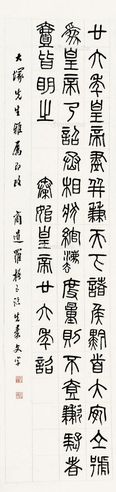 廿六年皇帝盡并兼天下諸侯黔首大安立號
為皇帝乃詔丞相狀綰灋度量則不壹歉疑者
壹皆明之 秦始皇帝廿六年詔
大塚先生雅屬 商遺羅振玉臨先秦文字